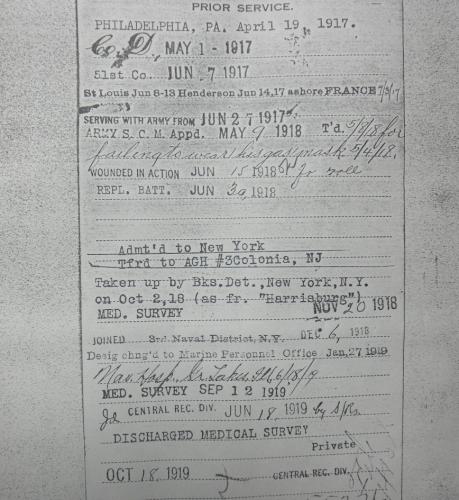 PRIOR SERVICE.
PHILADELPHIA, PA. April 19, 1917.
Co, D, MAY 1 - 1917
51st Co. JUN 7 1917
St Louis Jun 8-13 Henderson Jun 14,17 ashore FRANCE 7/3/17
SERVING WITH ARMY FROM JUN 27 1917
ARMY S. C. M. Appd. MAY 9 1918 T'd. 5/9/18 for
failing to wear his gas mask 5/4/18.
WOUNDED IN ACTION JUN 15 1918 roll
REPL. BATT. JUN 30, 1918
Admt'd to New York
Tfrd to AGH #3Colonia, NJ
Taken up by Bks.Det., New York, N.Y.
on Oct 2,18 (as fr. "Harrisburg")
MED. SURVEY NOV 20 1918
JOINED 3rd Naval District, N.Y. DEC 6, 1918
Desig chng'd to Marine Personnel Office Jan, 27 1919
Nav. Hosp. Gr. Lakes, Ill 6/18/19
MED. SURVEY SEP 12 1919
CENTRAL REC. DIV. JUN 18, 1919 by
DISCHARGED MEDICAL SURVEY
Private
OCT 18, 1919 CENTRAL REC. DIV.